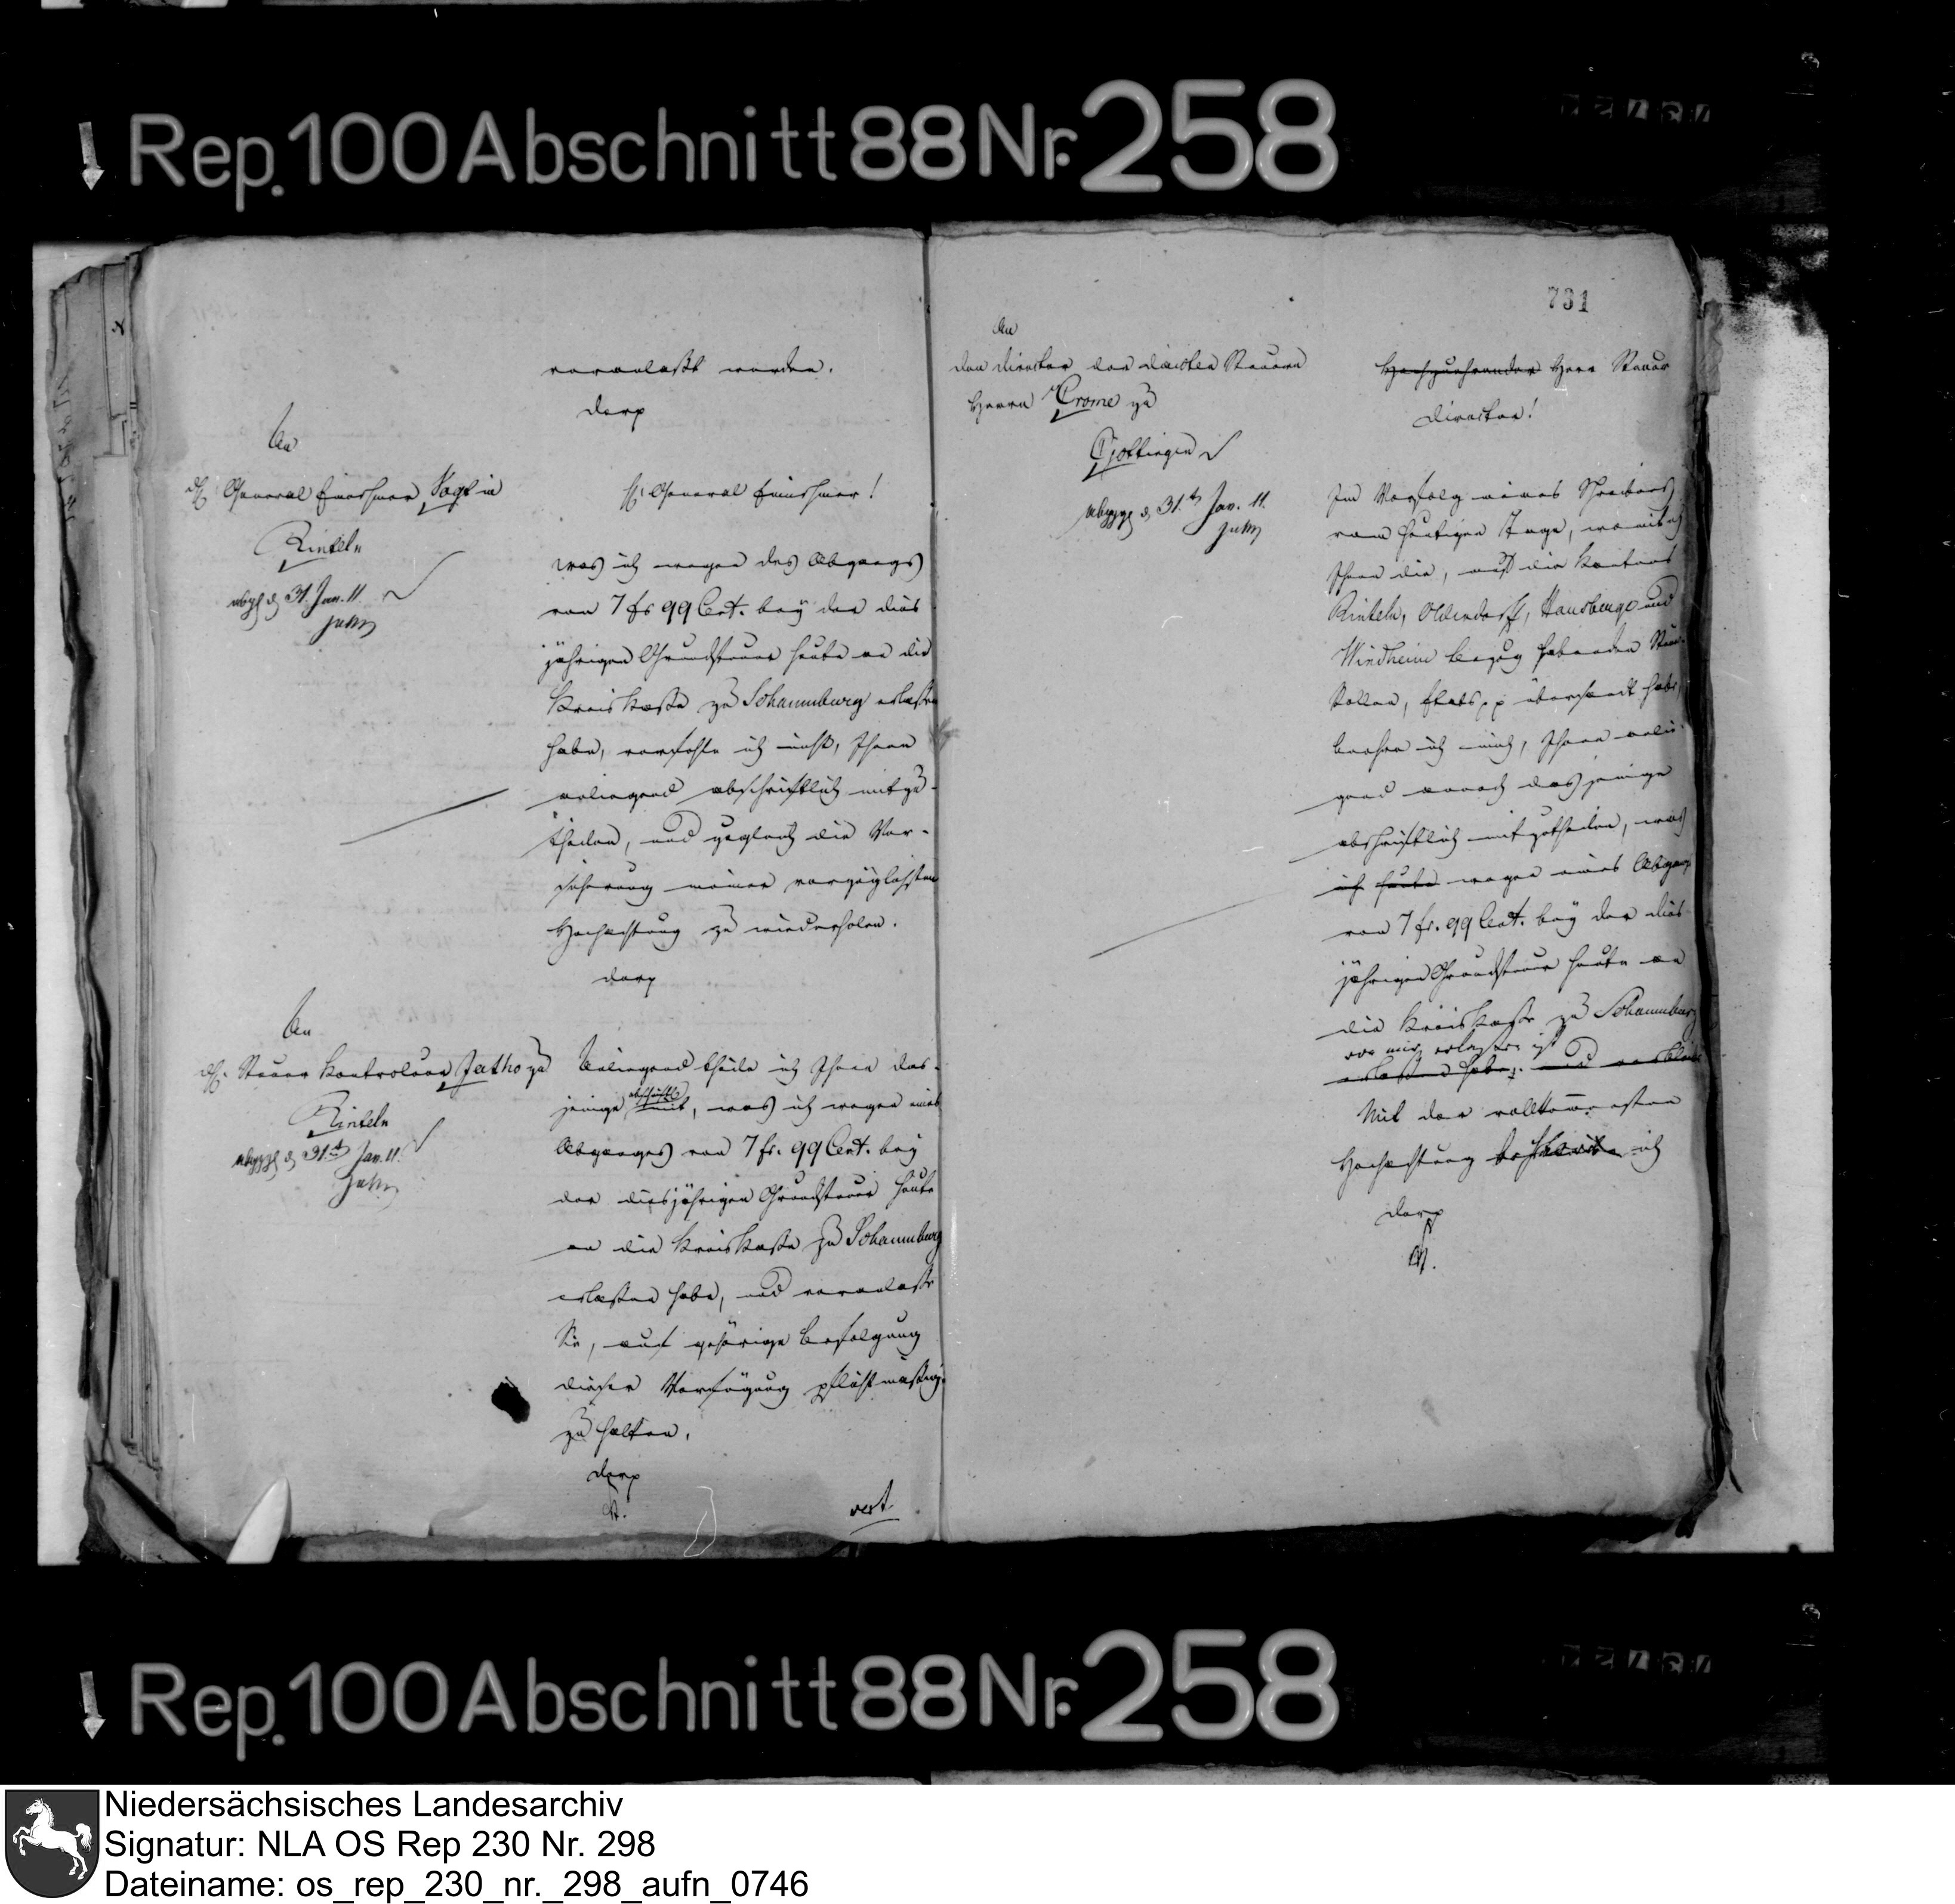 Rep. 100 Abschnitt 88 Nr. 258
veranlaßt werden.
An
General Einnehmer Vogt in
Rinteln
abgg d 31. Jan. 11.
H. General Einnehmer!
was ich wegen des Abgangs
von 7 fr 99 Cent. bey der dies
jährigen Grundsteuer heute an die
Kreis Kasse zu Schaumburg erlassen
habe, verfehle ich nicht, Ihnen
anliegend abschriftlich mitzu-
theilen, und zugleich die Ver-
sicherung meiner vorzüglichsten
Hochachtung zu wiederholen.
An
H. Steuer Kontroleur Jatho zu
Rinteln
abggg d 31.t Jan. 11.
Anliegend theile ich Ihnen das-
jenige abschriftl. mit, was ich wegen eines
Abganges von 7 fr. 99 Cent. bey
der diesjährigen Grundsteuer heute
an die Kreis Kasse zu Schaumburg
erlassen habe, und veranlasse
Sie, auf gehörige Befolgung
dieser Verfügung pflichtmäßig
zu halten.
vert
731
An
den Director der directen Steuern
Herrn Crome zu
Göttingen
abggg d 31.t Jan. 11.
Hochzuehrender Herr Steuer
Director!
Im Verfolg meines Schreibens
vom heutigen Tage, womit ich
Ihnen die, auf die Kantons
Rinteln, Oldendorff, Hausberge und
Windheim Bezug habenden Steuer-
Rollen, Etats pp übersandt habe,
beehre ich mich, Ihnen anlie-
gend annoch dasjenige
abschriftlich mitzutheilen, was
ich heute wegen eines Abgangs
von 7 fr. 99 Cent. bey der dies
jährigen Grundsteuer heute an
die Kreis Kasse zu Schaumburg
von mir erlassen ist
erlassen habe, und
Mit der vollkommensten
Hochachtung ich
Rep. 100 Abschnitt 88 Nr. 258
Niedersächsisches Landesarchiv
Signatur: NLA OS Rep 230 Nr. 298
Dateiname: os_rep_230_nr._298_aufn_0746